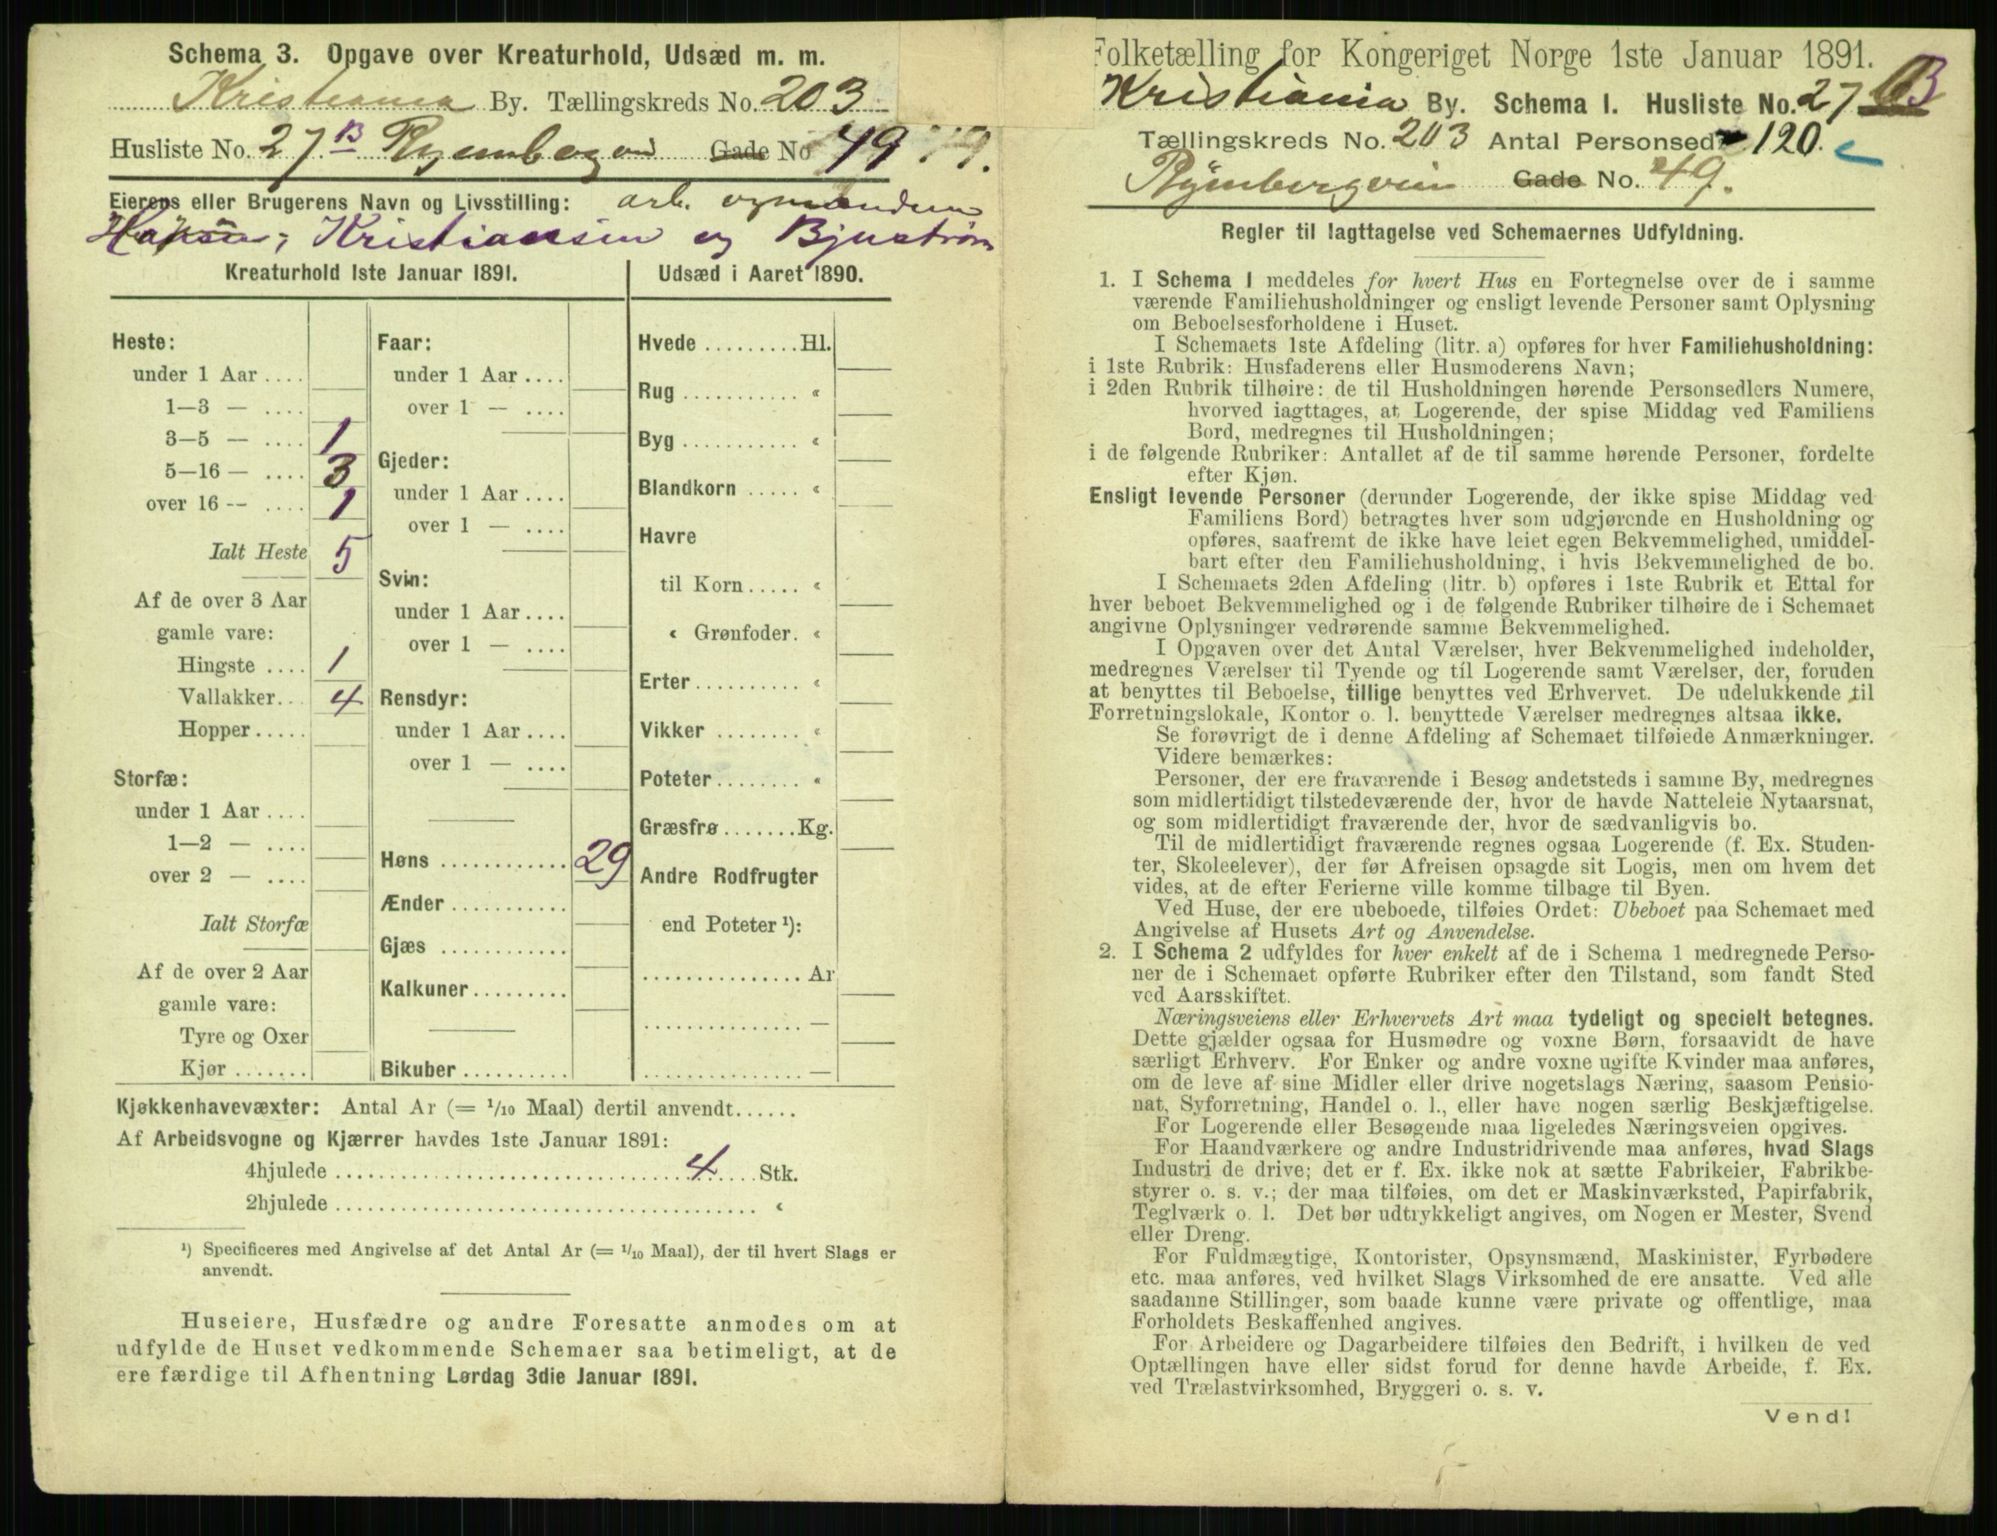 Schema 3. Opgave over Kreaturhold, Udsæd m. m.
Kristiania By. Tællingskreds No. 203
Husliste No. 27 B Gade No 49
Eierens eller Brugerens Navn og Livsstilling: arb.
Kristiansen og Bjuström
Kreaturhold 1ste Januar 1891.
Heste:
under 1 Aar ....
1—3 — ....
3—5 — .... 1
5—16 — .... 3
over 16 — .... 1
Ialt Heste 5
Af de over 3 Aar
gamle vare:
Hingste .... 1
Vallakker.. 4
Hopper.....
Storfæ:
under 1 Aar ....
1—2 — ....
over 2 — ....
Ialt Storfæ
Af de over 2 Aar
gamle vare:
Tyre og Oxer
Kjør .......
Faar:
under 1 Aar ....
over 1 — ....
Gjeder:
under 1 Aar ....
over 1 — ....
Svin:
under 1 Aar ....
over 1 — ....
Rensdyr:
under 1 Aar ....
over 1 — ....
Høns ............ 29
Ænder ...........
Gjæs ............
Kalkuner.........
Bikuber ..........
Udsæd i Aaret 1890.
Hvede .........Hl.
Rug ........... «
Byg ........... «
Blandkorn ..... «
Havre
til Korn..... «
« Grønfoder. «
Erter.......... «
Vikker ........ «
Poteter........ «
Græsfrø .......Kg.
Andre Rodfrugter
end Poteter ¹):
............... Ar
............... —
............... —
Kjøkkenhavevæxter: Antal Ar (= 1/10 Maal) dertil anvendt......
Af Arbeidsvogne og Kjærrer havdes 1ste Januar 1891:
4hjulede .................... 4 .... Stk.
2hjulede .................... «
¹) Specificeres med Angivelse af det Antal Ar (= 1/10 Maal), der til hvert Slags er
anvendt.
Huseiere, Husfædre og andre Foresatte anmodes om at
udfylde de Huset vedkommende Schemaer saa betimeligt, at de
ere færdige til Afhentning Lørdag 3die Januar 1891.
Folketælling for Kongeriget Norge 1ste Januar 1891.
Kristiania By. Schema 1. Husliste No. 27 B
Tællingskreds No. 203 Antal Personsed 120.
Gade No. 49.
Regler til Iagttagelse ved Schemaernes Udfyldning.
1. I Schema 1 meddeles for hvert Hus en Fortegnelse over de i samme
værende Familiehusholdninger og ensligt levende Personer samt Oplysning
om Beboelsesforholdene i Huset.
I Schemaets 1ste Afdeling (litr. a) opføres for hver Familiehusholdning:
i 1ste Rubrik: Husfaderens eller Husmoderens Navn;
i 2den Rubrik tilhøire: de til Husholdningen hørende Personsedlers Numere,
hvorved iagttages, at Logerende, der spise Middag ved Familiens
Bord, medregnes til Husholdningen;
i de følgende Rubriker: Antallet af de til samme hørende Personer, fordelte
efter Kjøn.
Ensligt levende Personer (derunder Logerende, der ikke spise Middag ved
Familiens Bord) betragtes hver som udgjørende en Husholdning og
opføres, saafremt de ikke have leiet egen Bekvemmelighed, umiddel-
bart efter den Familiehusholdning, i hvis Bekvemmelighed de bo.
I Schemaets 2den Afdeling (litr. b) opføres i 1ste Rubrik et Ettal for
hver beboet Bekvemmelighed og i de følgende Rubriker tilhøire de i Schemaet
angivne Oplysninger vedrørende samme Bekvemmelighed.
I Opgaven over det Antal Værelser, hver Bekvemmelighed indeholder,
medregnes Værelser til Tyende og til Logerende samt Værelser, der, foruden
at benyttes til Beboelse, tillige benyttes ved Erhvervet. De udelukkende til
Forretningslokale, Kontor o. l. benyttede Værelser medregnes altsaa ikke.
Se forøvrigt de i denne Afdeling af Schemaet tilføiede Anmærkninger.
Videre bemærkes:
Personer, der ere fraværende i Besøg andetsteds i samme By, medregnes
som midlertidigt tilstedeværende der, hvor de havde Natteleie Nytaarsnat,
og som midlertidigt fraværende der, hvor de sædvanligvis bo.
Til de midlertidigt fraværende regnes ogsaa Logerende (f. Ex. Studen-
ter, Skoleelever), der før Afreisen opsagde sit Logis, men om hvem det
vides, at de efter Ferierne ville komme tilbage til Byen.
Ved Huse, der ere ubeboede, tilføies Ordet: Ubeboet paa Schemaet med
Angivelse af Husets Art og Anvendelse.
2. I Schema 2 udfyldes for hver enkelt af de i Schema 1 medregnede Perso-
ner de i Schemaet opførte Rubriker efter den Tilstand, som fandt Sted
ved Aarsskiftet.
Næringsveiens eller Erhvervets Art maa tydeligt og specielt betegnes.
Dette gjælder ogsaa for Husmødre og voxne Børn, forsaavidt de have
særligt Erhverv. For Enker og andre voxne ugifte Kvinder maa anføres,
om de leve af sine Midler eller drive nogetslags Næring, saasom Pensio-
nat, Syforretning, Handel o. l., eller have nogen særlig Beskjæftigelse.
For Logerende eller Besøgende maa ligeledes Næringsveien opgives.
For Haandværkere og andre Industridrivende maa anføres, hvad Slags
Industri de drive; det er f. Ex. ikke nok at sætte Fabrikeier, Fabrikbe-
styrer o. s. v.; der maa tilføies, om det er Maskinværksted, Papirfabrik,
Teglværk o. l. Det bør udtrykkeligt angives, om Nogen er Mester, Svend
eller Dreng.
For Fuldmægtige, Kontorister, Opsynsmænd, Maskinister, Fyrbødere
etc. maa anføres, ved hvilket Slags Virksomhed de ere ansatte. Ved alle
saadanne Stillinger, som baade kunne være private og offentlige, maa
Forholdets Beskaffenhed angives.
For Arbeidere og Dagarbeidere tilføies den Bedrift, i hvilken de ved
Optællingen have eller sidst forud for denne havde Arbeide, f. Ex.
ved Trælastvirksomhed, Bryggeri o. s. v.
Vend!